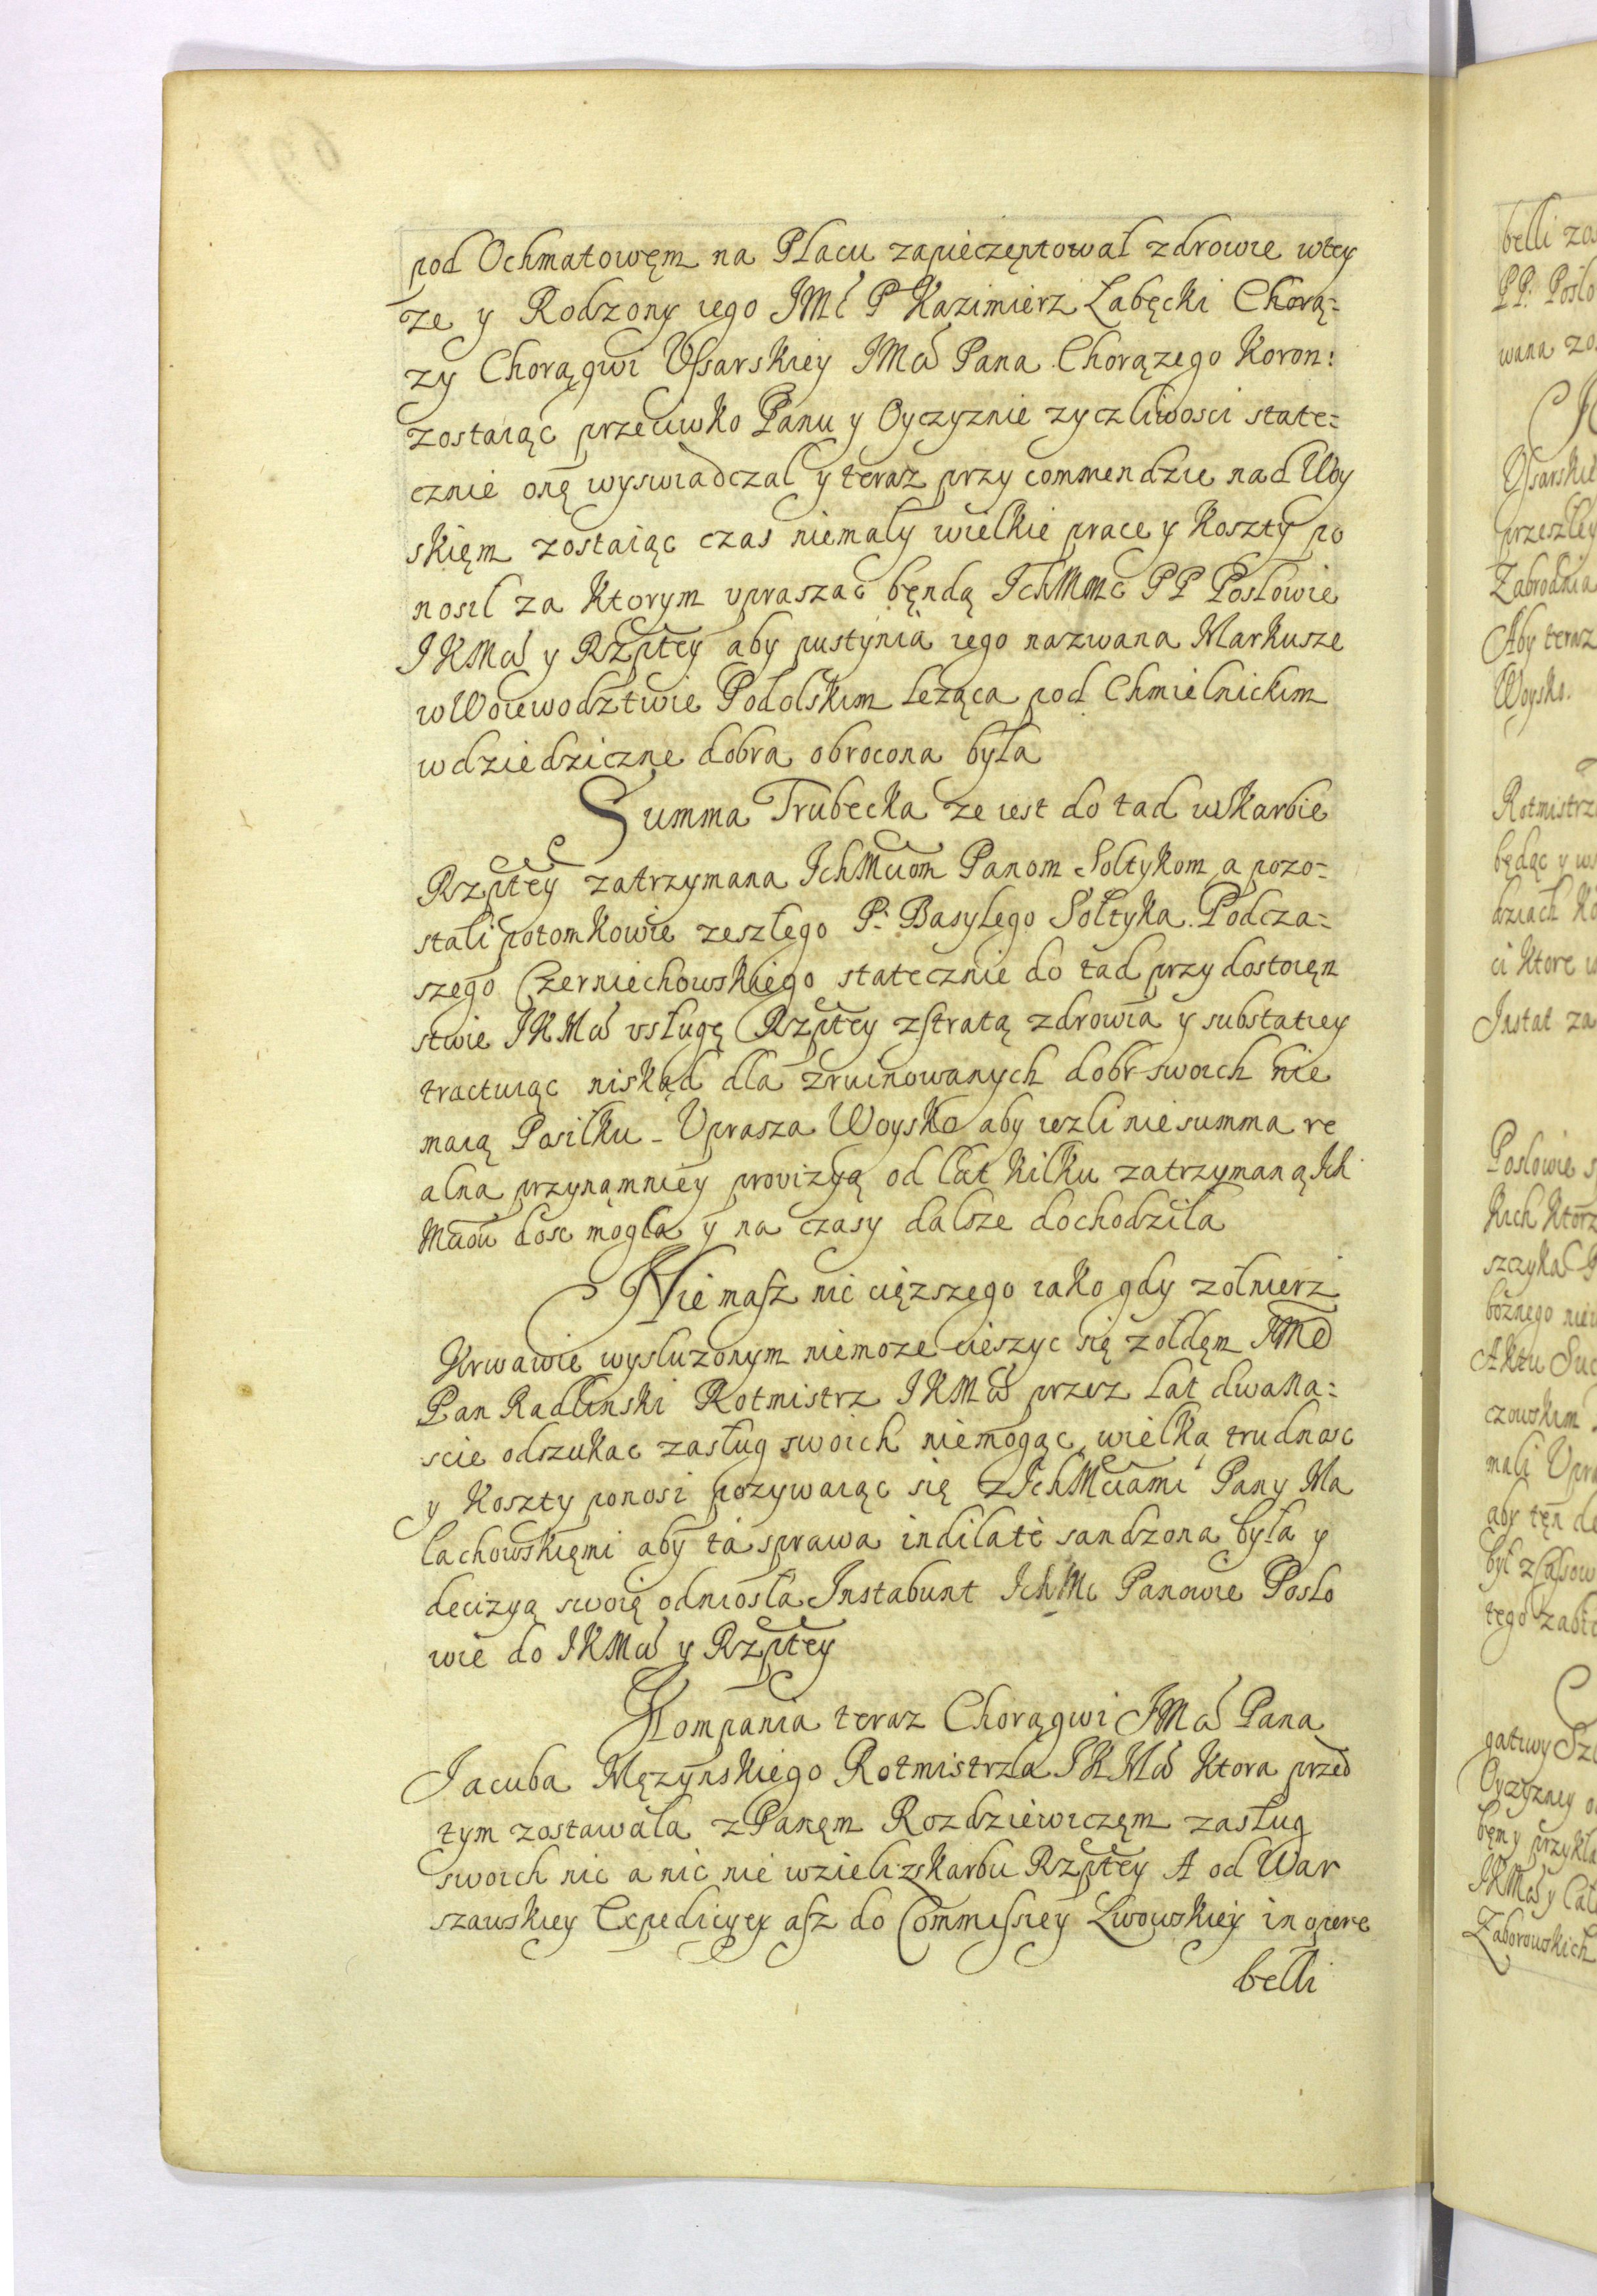 pod Ochmatowęm na Placu zapieczęntował zdrowie wtey
ze y Rodzony iego JMć P Kazimierz Łabęcki Chorą=
zy Chorągwi Ussarskiey JMci Pana Chorązego Koron:
zostaiąc przeciwko Panu y Oyczyznie zyczliwosci state=
cznie onę wyswiadczal y teraz przy commendzie nad Woy
skięm zostaiąc czas niemaly wielkie prace y Koszty po
nosil za Ktorym vpraszac bęndą IchMmc PP Posłowie
JKMci y Rzptey aby pustynia iego nazwana Markusze
w Woiewodztwie Podolskim leząca pod Chmielnickim
w dziedziczne dobra obrocona była
Summa Trubecka ze iest do tad w skarbie
Rzptey zatrzymana IchMciom Panom Soltykom a pozo=
stali potomkowie zeszłego P: Basylego Sołtyka Podcza=
szego Czerniechowskiego statecznie do tad przy dostoięn
stwie JKMci vsługę Rzptey z stratą zdrowia y substatiey
tractuiąc niskąd dla zruinowanych dobr swoich nie
maią Posilku - Vprasza Woysko aby iezli nie summa re
alna przynamniey provizyą od lat kilku zatrzymaną Ich
Mciow dosc mogła y na czasy dalsze dochodziła
Nie masz nic cięzszego iako gdy zołnierz
Krwawie wysluzonym niemoze cieszyc się zołdęm JMc
Pan Radlinski Rotmistrz JKMci przez lat dwana=
scie odszukac zasług swoich niemogąc wielką trudnosc
y Koszty ponosi pozywaiąc się z IchMciami Pany Ma
lachowskięmi aby ta sprawa indilatè sandzona była y
decizyą swoię odniosła Instabunt IchMc Panowie Posło
wie do JKMci y Rzptey
Kompania teraz Chorągwi JMci Pana
Jacuba Męzynskiego Rotmistrza JKMci Ktora przed
tym zostawała z Panęm Rozdziewiczęm zasług
swoich nic a nic nie wzieli z skarbu Rzptey A od War
szawskiey Expedicyey asz do Commissiey Lwowskiey in opere
belli
belli
PP. Posło
wana
przeszłey
Aby teraz
Woysko.
Rotmistrz
będąc y
ci Ktore
Instat za
Posłowie
Kich Ktorz
boznego
Aktu
czowskim
mali
aby tęn
był
tego
Oyczyzney
bęm y
JKMci y
Zaborowskich